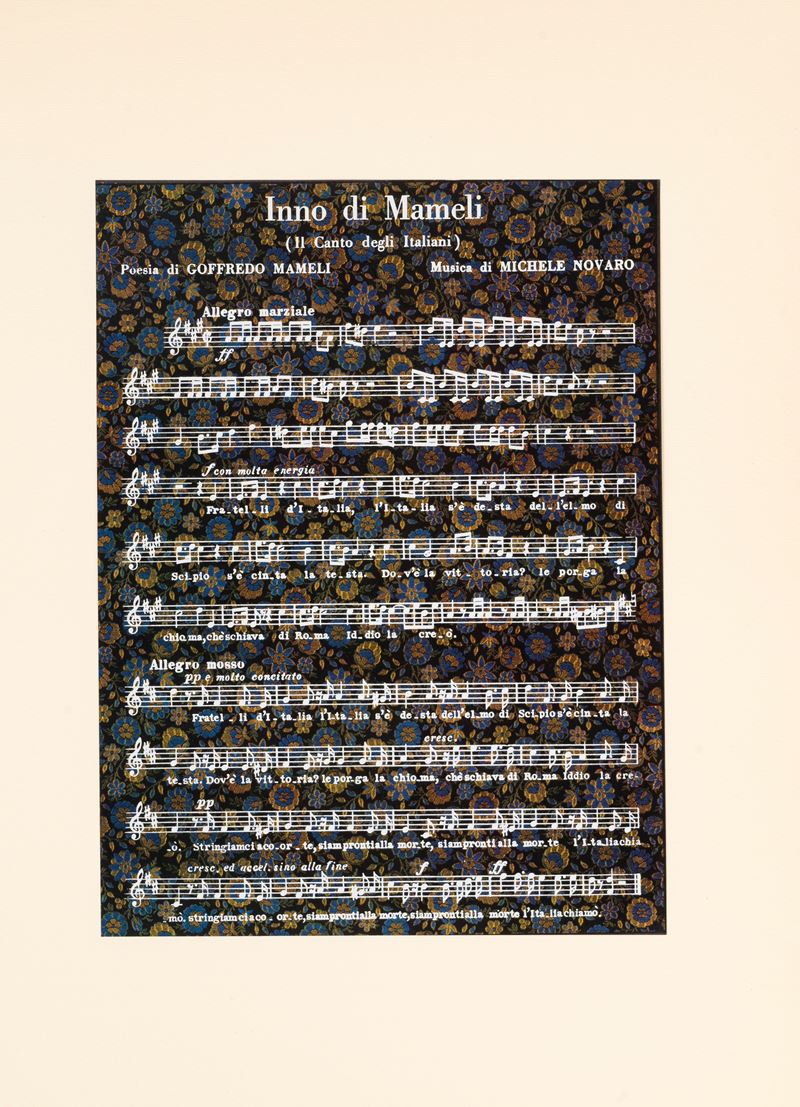 Inno di Mameli
(Il Canto degli Italiani)
Poesia di GOFFREDO MAMELI Musica di MICHELE NOVARO
Allegro marziale
ff
f con molta energia
Fra_tel_li d'I_ta_lia, l'I_ta_lia s'è de_sta del_l'el_mo di
Sci_pio s'è cin_ta la te_sta. Do_v'è la vit_to_ria? le por_ga la
chio_ma, chè schiava di Ro_ma Id_dio la cre_ò.
Allegro mosso
pp e molto concitato
Fratel_li d'I_ta_lia l'I_ta_lia s'è de_sta dell'el_mo di Sci_pio s'è cin_ta la
cresc.
te_sta. Dov'è la vit_to_ria? le por_ga la chio_ma, chè schiava di Ro_ma Iddio la cre-
pp
_ò. Stringiamci a co_or_te, siam pronti alla mor_te, siam pronti alla mor_te l'I_ta_lia chia
cresc. ed accel. sino alla fine f ff
_mo. stringiamci a co_or_te, siam pronti alla morte, siam pronti alla morte l'Ita_lia chiamò.